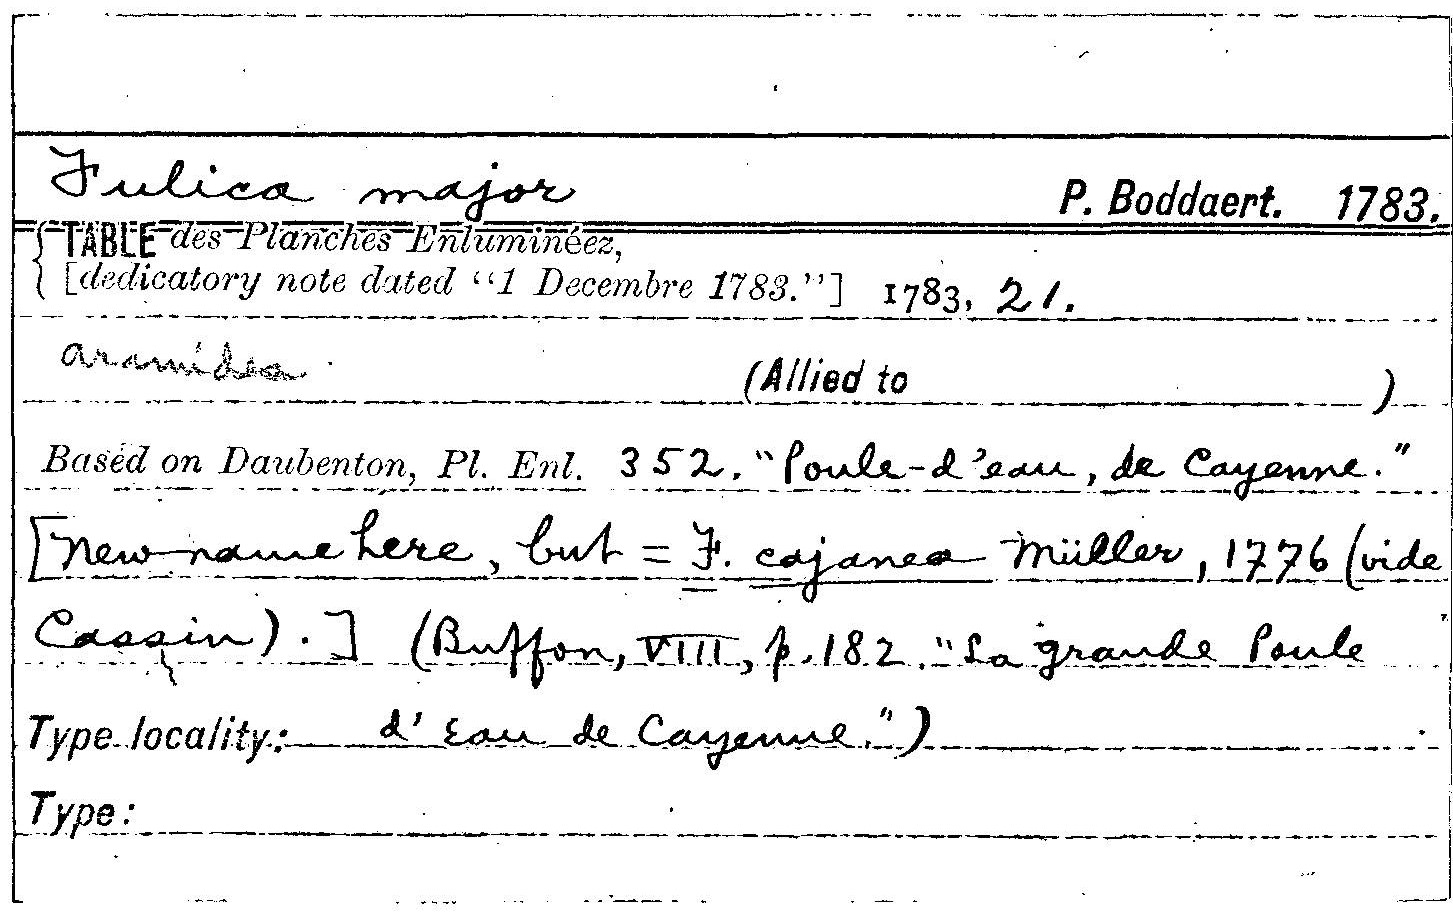 Fulica major P. Boddaert. 1783.
TABLE des Planches Enluminéez,
[dedicatory note dated "1 Decembre 1783."] 1783, 21.
aramides (Allied to )
Based on Daubenton, Pl. Enl. 352. "Poule-d'eau, de Cayenne."
[New name here, but = F. cajanea Müller, 1776 (vide
Cassin).] (Buffon, VIII, p. 182. "La grande Poule
Type locality: d'Eau de Cayenne.")
Type: